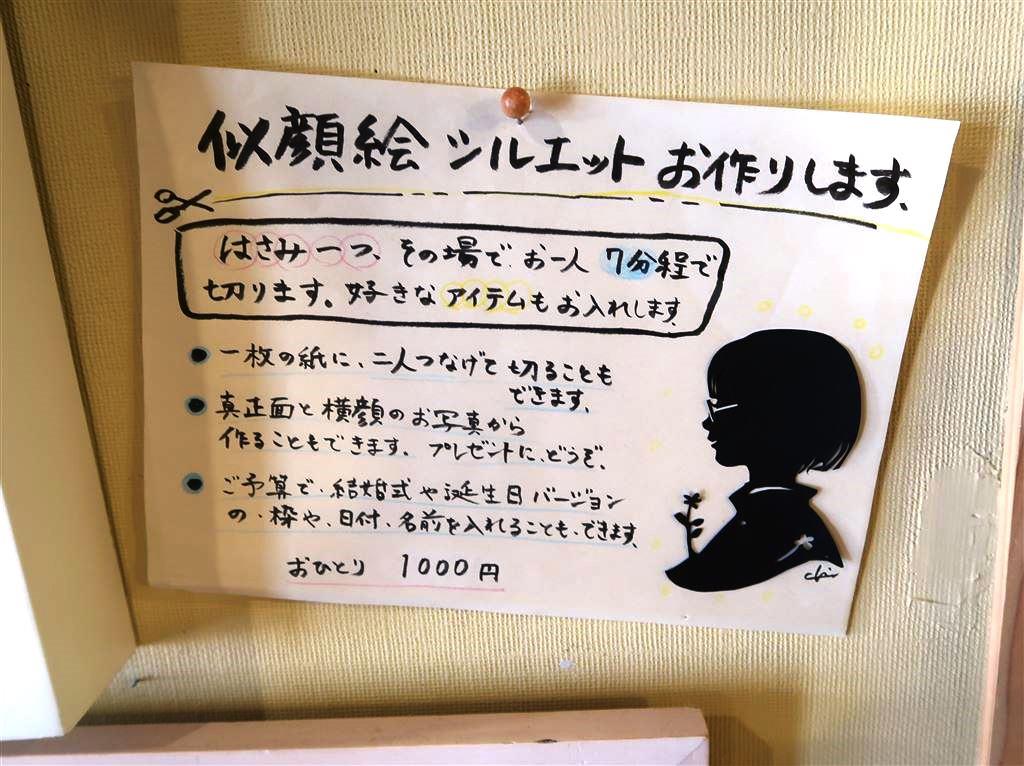 似顔絵 シルエット お作りします.
はさみ一つ、その場で.お一人 7分程で
切ります。好きな アイテムも お入れします.
● 一枚の紙に、二人つなげて 切ることも
できます.
● 真正面と 横顔の お写真から
作ることもできます. プレゼントに、どうぞ.
● ご予算で、結婚式や 誕生日 バージョン
の・枠や、日付、名前を入れることも、できます.
おひとり 1000円